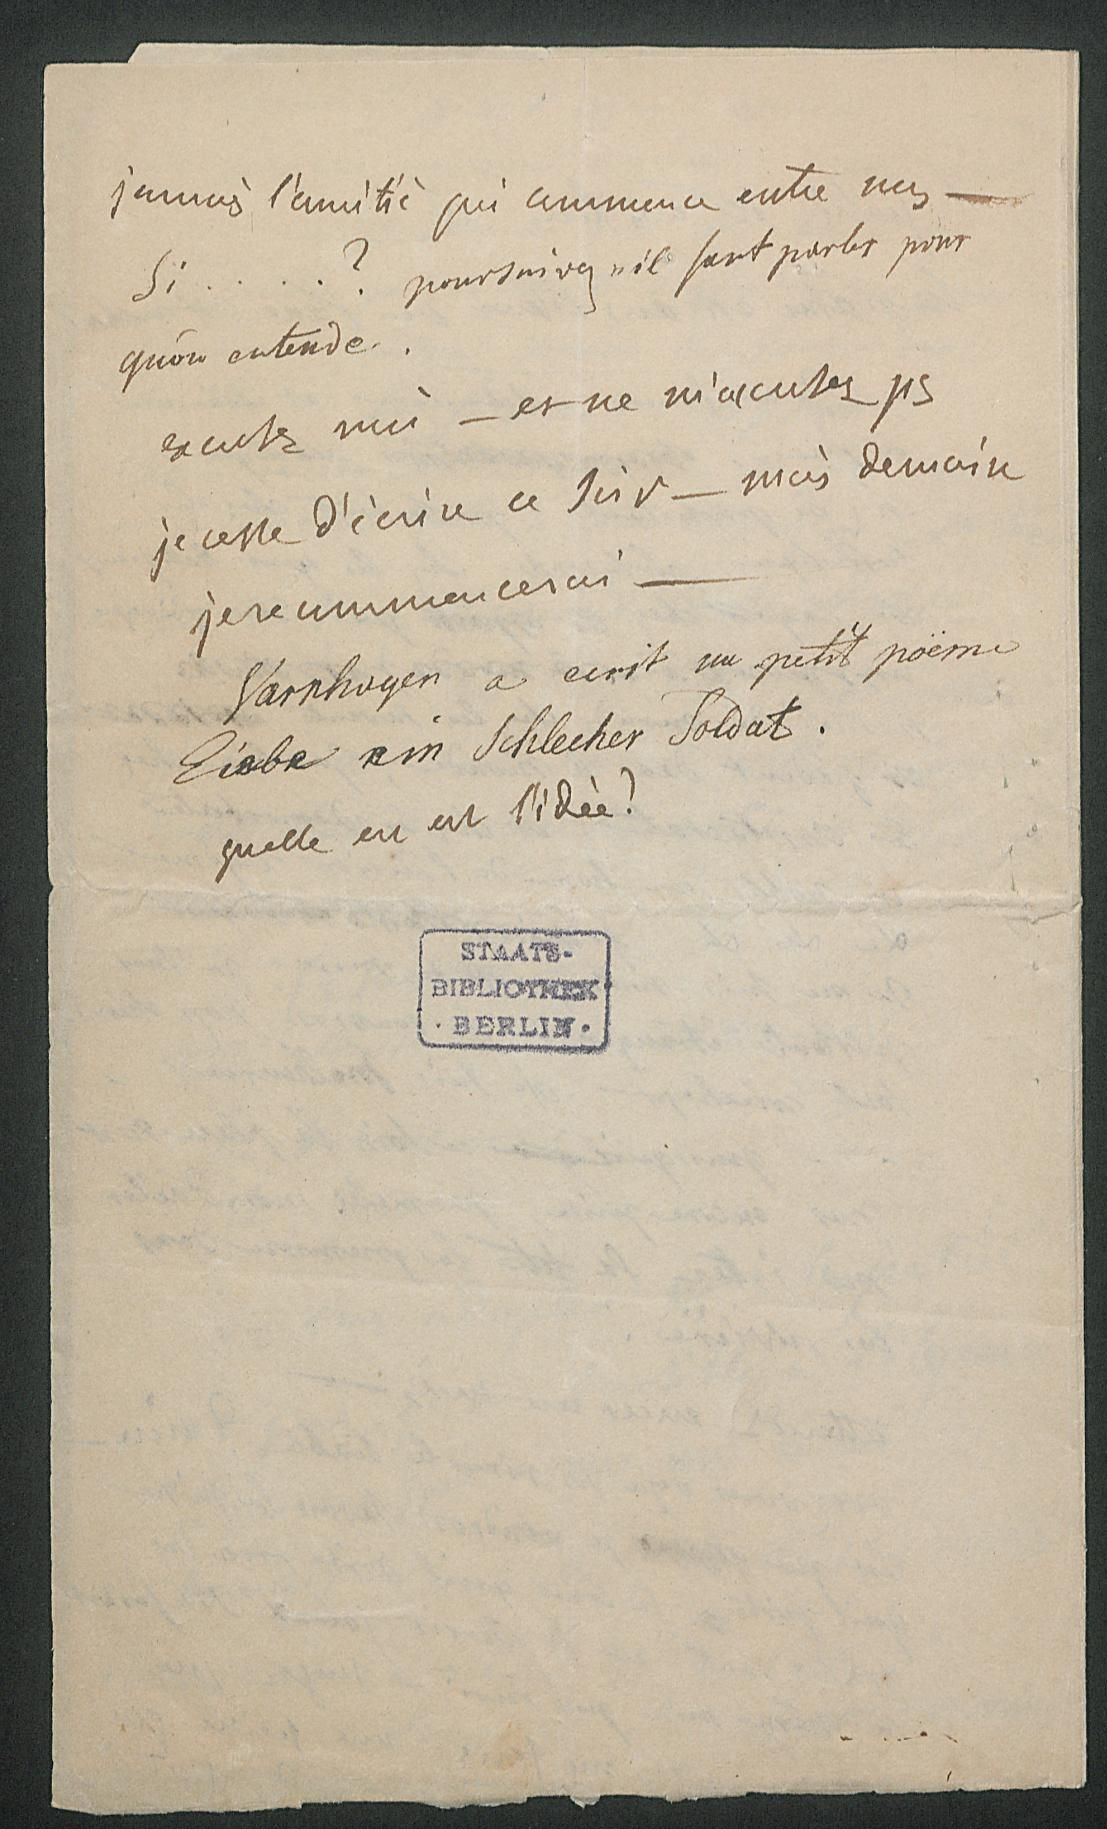 jamais l'amitié qui commence entre nous —
Si . . . . . ? poursuivez "il faut parler pour
qu'on entende .
excusez moi — et ne m'accusez pas
je cesse d'écrire ce soir — mais demain
je recommencerai —
Varnhagen a ecrit un petit poëme
Liebe ein Schlecher Soldat .
quelle en est l'idée?
STAATS-
BIBLIOTHEK
· BERLIN ·